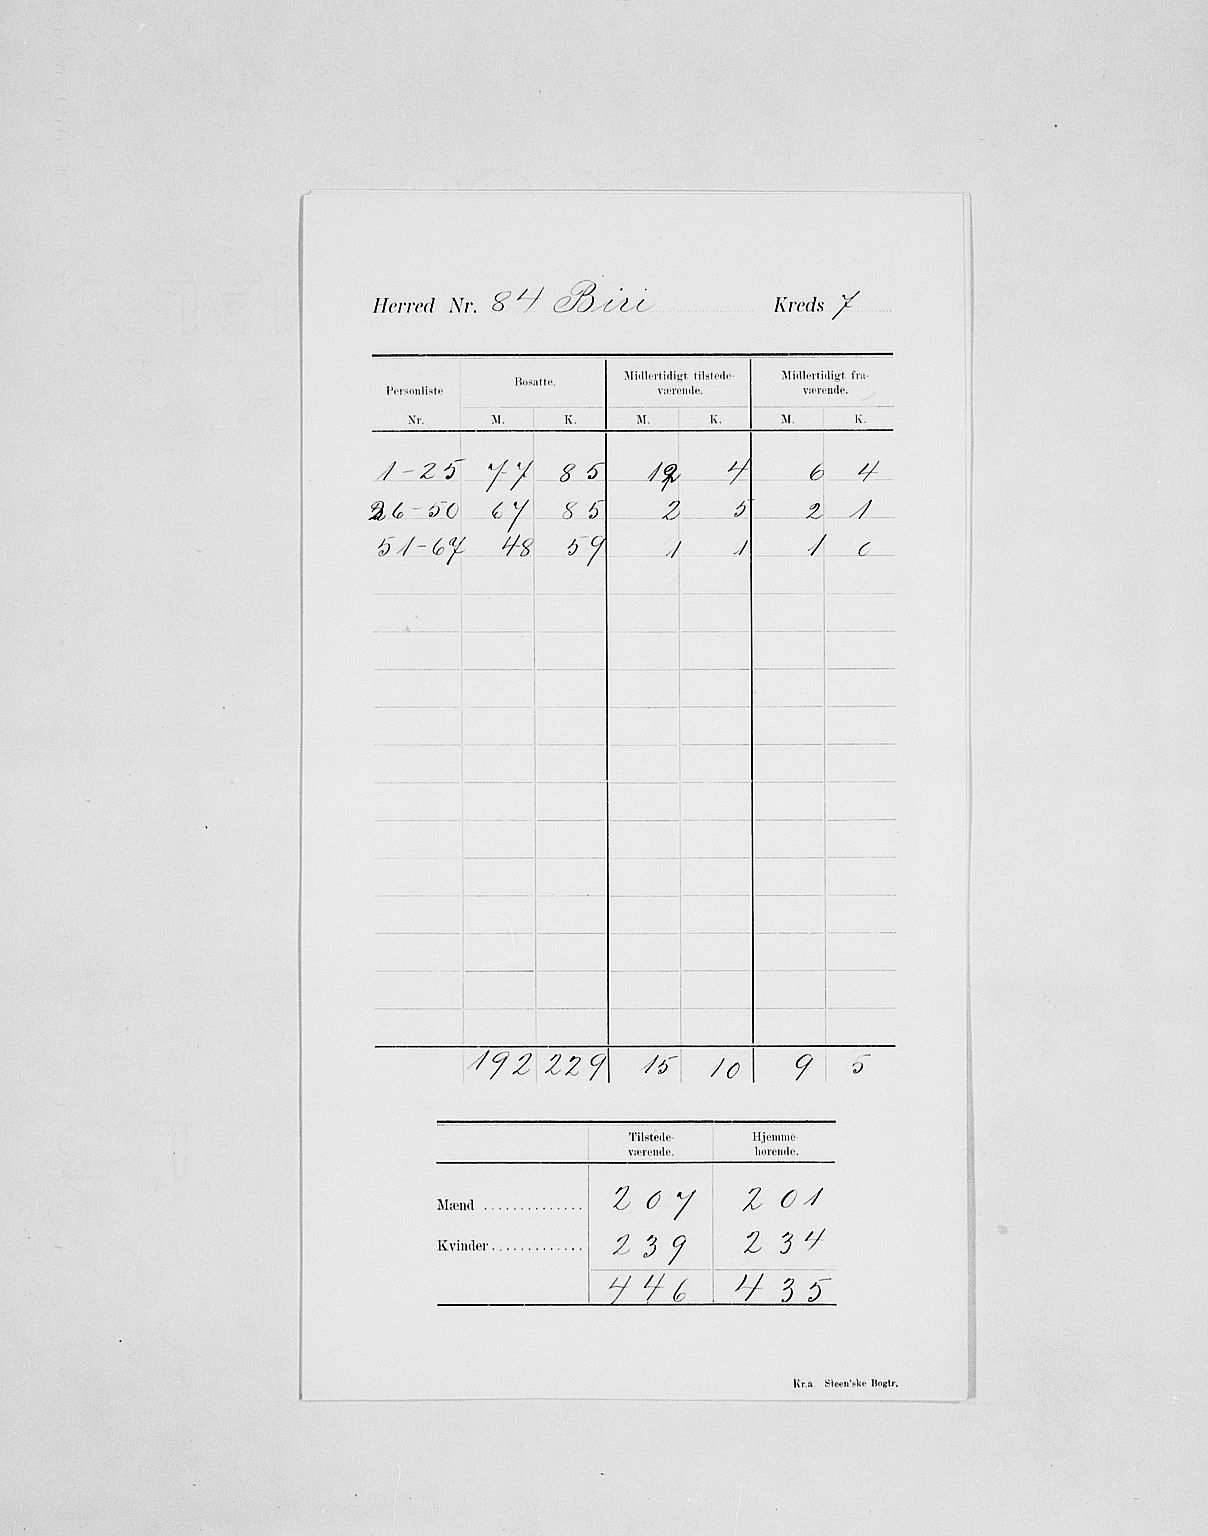 Herred Nr. 84 Biri Kreds 7
Personliste Nr. Bosatte. Midlertidigt tilstede-værende. Midlertidigt fra-værende.
M. K. M. K. M. K.
1-25 77 85 12 4 6 4
26-50 67 85 2 5 2 1
51-67 48 59 1 1 1 0
192 229 15 10 9 5
Tilstede-værende. Hjemme-hørende.
Mænd .............. 207 201
Kvinder ............. 239 234
446 435
Kr.a Steen'ske Bogtr.